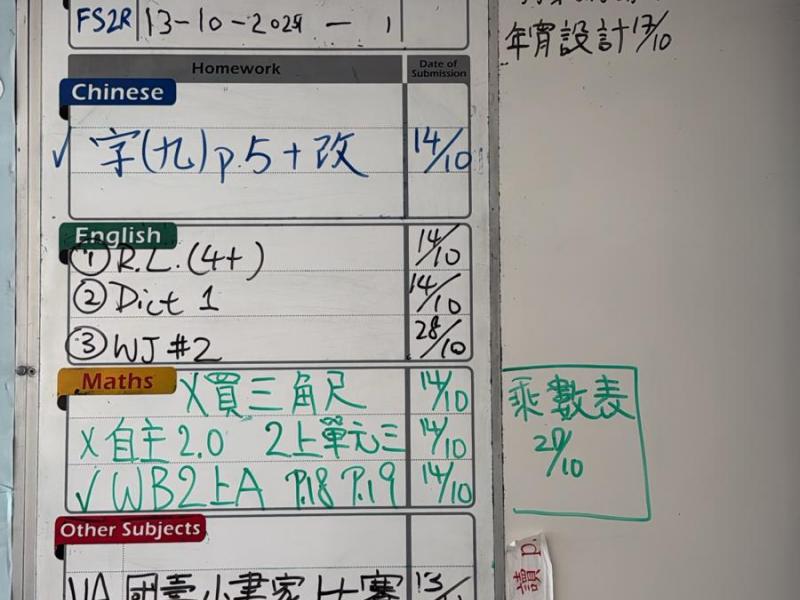 FS2R 13-10-2025 - 1
年宵設計 17/10
Homework Date of Submission
Chinese
✓ 字(九)p.5+改 14/10
English
① R.L.(4+) 14/10
② Dict 1 14/10
③ WJ #2 28/10
Maths
X買三角尺 14/10
X自主2.0 2上單元三 14/10
✓WB2上A P.18 P.19 14/10
乘數表
/10
Other Subjects
VA 小畫家比賽 13/
讀 p.